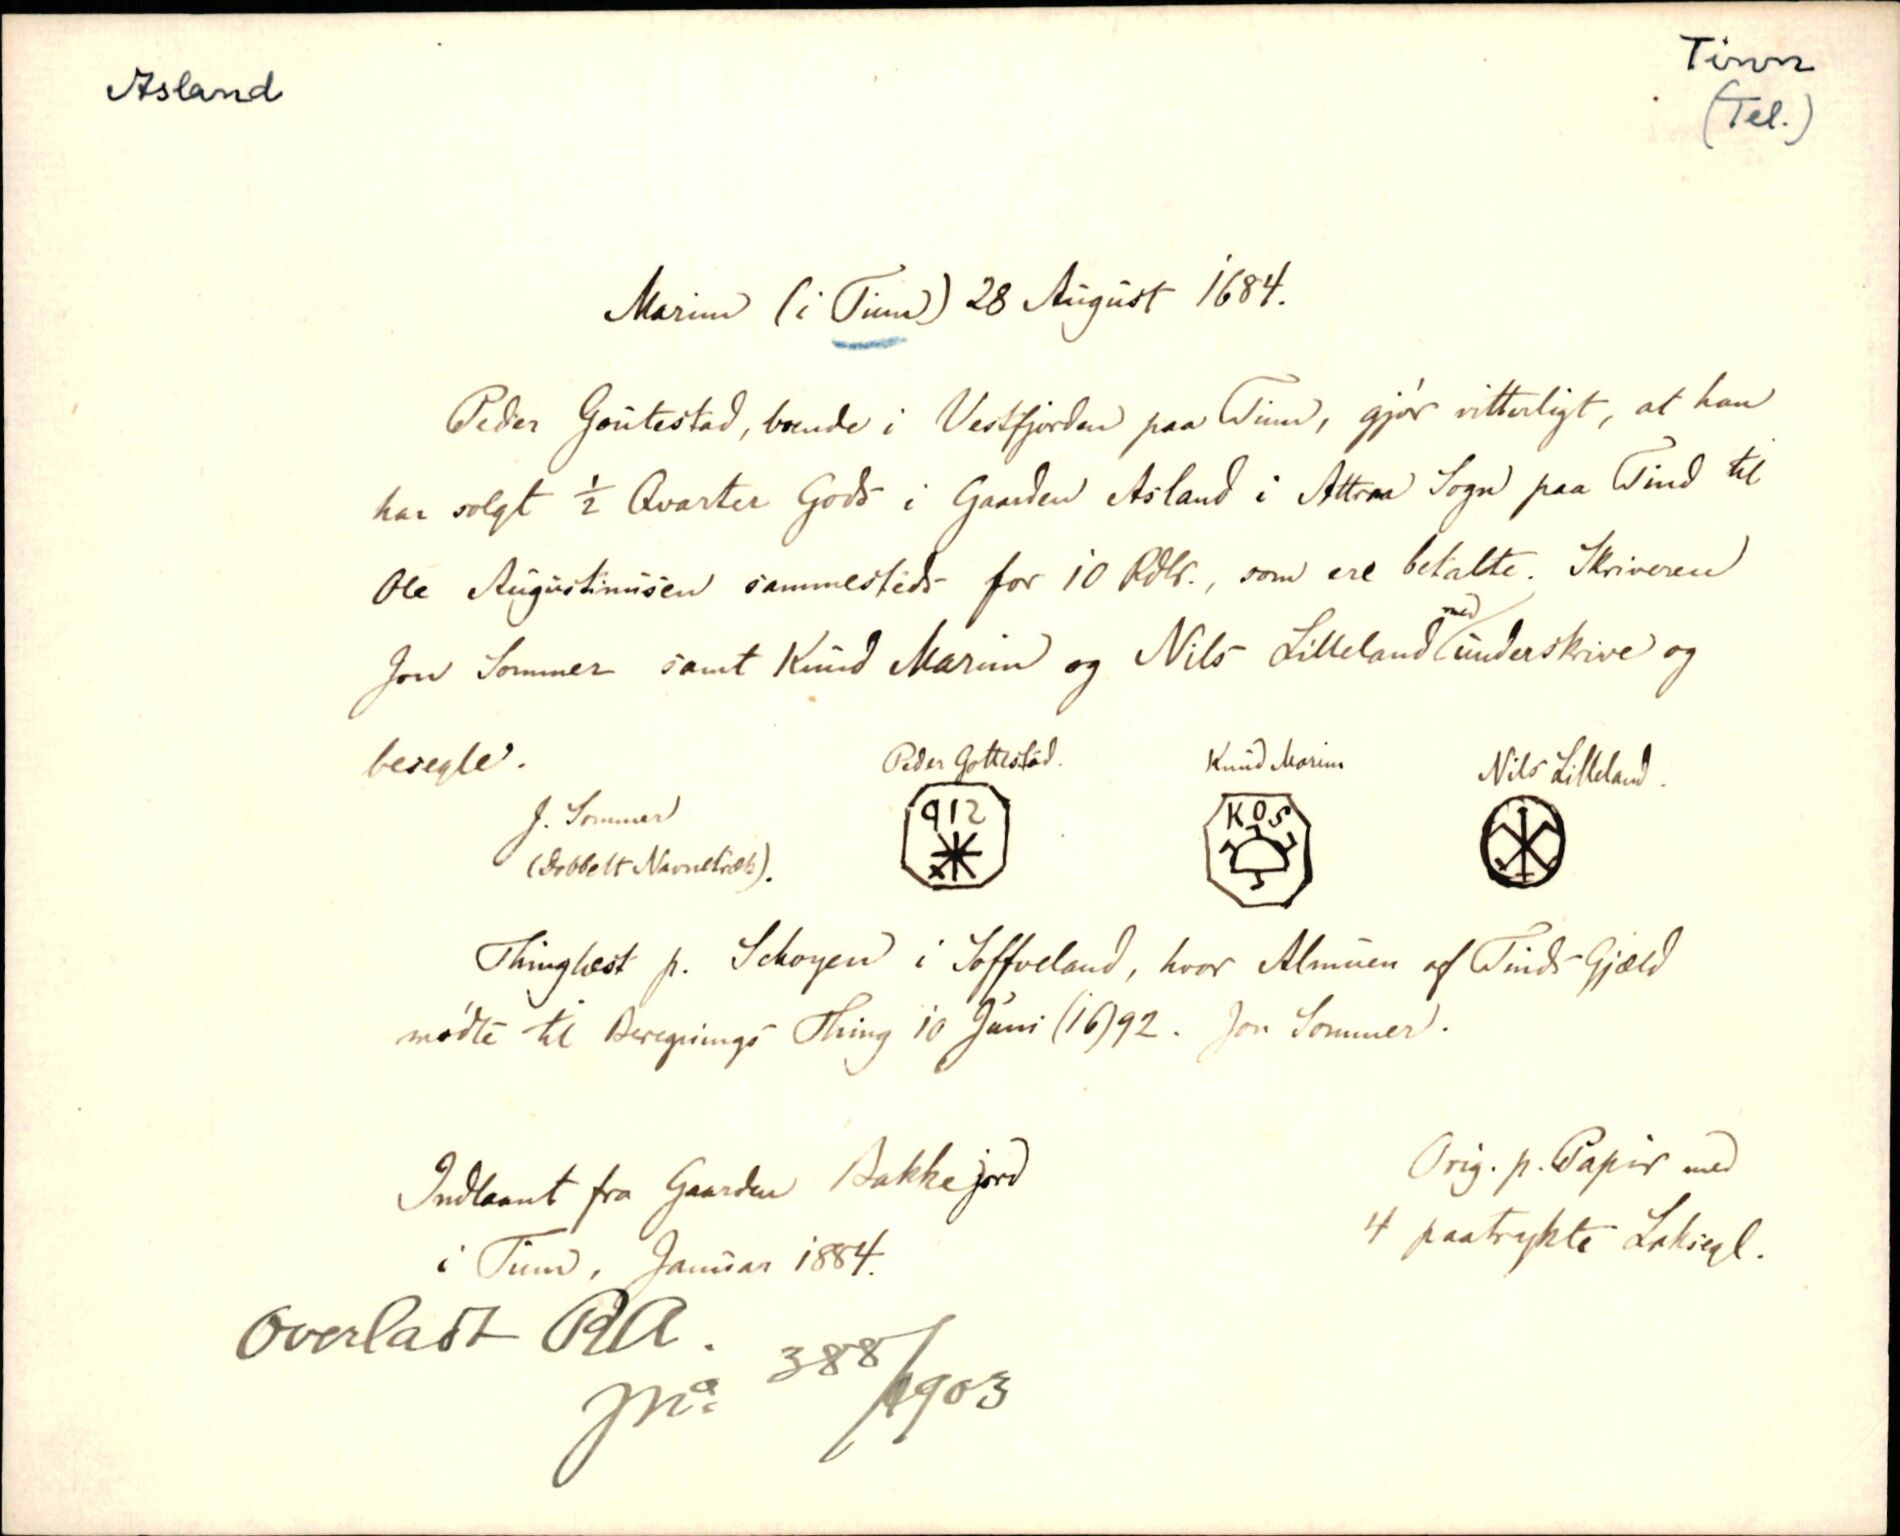 Asland
Tinn
(Tel.)
Marim (i Tinn) 28 August 1684.
Peder Goutestad, boende i Vestfjorden paa Tinn, gjør vitterligt, at han
har solgt ½ Qvarter Gods i Gaarden Asland i Attraa Sogn paa Tind til
Ole Augustinusen sammesteds for 10 Rdlr., som ere betalte. Skriveren
Jon Sommer samt Knud Marim og Nils Lilleland med underskrive og
besegle.
Peder Gottestad. Knud Marim Nils Lilleland.
J. Sommer
(Dobbelt Navnetræk).
912
KOS
Thinglæst p. Schoyen i Soffveland, hvor Almuen af Tinds Gjæld
mødte til Beregnings Thing 10 Juni (16)92. Jon Sommer.
Indlaant fra Gaarden Bakkejord
i Tinn, Januar 1884.
Orig. p. Papir med
4 paatrykte Laksegl.
Overladt RA.
388/1903